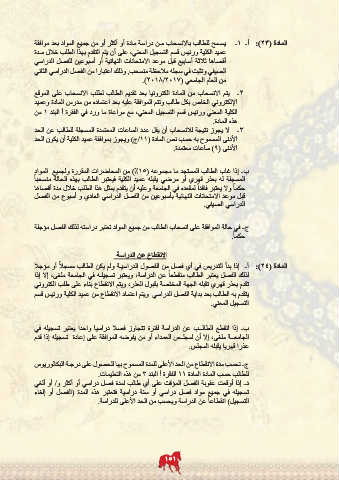 المادة (٢٣): أ. ١- يسمح للطالب بالانسحاب من دراسة مادة أو أكثر أو من جميع المواد بعد موافقة
عميد الكلية ورئيس قسم التسجيل المعني، على أن يتم التقدم بهذا الطلب خلال مدة
أقصاها ثلاثة أسابيع قبل موعد الامتحانات النهائية أو أسبوعين للفصل الدراسي
الصيفي وتثبت في سجله ملاحظة منسحب. وذلك اعتبارا من الفصل الدراسي الثاني
من العام الجامعي (٢٠١٨/٢٠١٧).
٢- يتم الانسحاب من المادة الكترونيا بعد تقديم الطالب لطلب الانسحاب على الموقع
الإلكتروني الخاص بكل طالب وتتم الموافقة عليه بعد اعتماده من مدرس المادة وعميد
الكلية المعني ورئيس قسم التسجيل المعني، مع مراعاة ما ورد في الفقرة أ البند ١ من
هذه المادة.
٣- لا يجوز نتيجة للانسحاب أن يقل عدد الساعات المعتمدة المسجلة للطالب عن الحد
الأدنى المسموح به حسب نص المادة (١١/ج) ويجوز بموافقة عميد الكلية أن يكون الحد
الأدنى (٩) ساعات معتمدة.
ب. إذا غاب الطالب المستجد ما مجموعه (١٥٪) من المحاضرات المقررة ولجميع المواد
المسجلة له بعذر قهري أو مرضي يقبله عميد الكلية فيعتبر الطالب بهذه الحالة منسحباً
حكماً ولا يعتبر فاقداً لمقعده في الجامعة وعليه أن يتقدم بمثل هذا الطلب خلال مدة أقصاها
قبل موعد الامتحانات النهائية بأسبوعين من الفصل الدراسي العادي و أسبوع من الفصل
الدراسي الصيفي.
ج. في حالة الموافقة على انسحاب الطالب من جميع المواد تعتبر دراسته لذلك الفصل مؤجلة
حكماً.
الانقطاع عن الدراسة
المادة (٢٤): أ. إذا بدأ التدريس في أي فصل من الفصول الدراسية ولم يكن الطالب مسجلاً أو مؤجلاً
لذلك الفصل يعتبر الطالب منقطعاً عن الدراسة، ويعتبر تسجيله في الجامعة ملغى، إلا إذا
تقدم بعذر قهري تقبله الجهة المختصة بقبول العذر، ويتم الانقطاع بناء على طلب الكتروني
يتقدم به الطالب بعد بداية الفصل الدراسي. ويتم اعتماد الانقطاع من عميد الكلية ورئيس قسم
التسجيل المعني.
ب. إذا انقطع الطالب عن الدراسة لفترة تتجاوز فصلا دراسيا واحدا يعتبر تسجيله في
الجامعة ملغى، إلا أن لمجلس العمداء أو من يفوضه الموافقة على إعادة تسجيله إذا قدم
عذرا قهريا يقبله المجلس.
ج. تحسب مدة الانقطاع من الحد الأعلى للمدة المسموح بها للحصول على درجة البكالوريوس
للطالب حسب المادة المادة ١١ الفقرة أ البند ٣ من هذه التعليمات.
د. إذا أوقعت عقوبة الفصل المؤقت على أي طالب لمدة فصل دراسي أو أكثر و/ أو ألغي
تسجيله في جميع مواد فصل دراسي أو سنة دراسية فتعتبر هذه المدة (الفصل أو إلغاء
التسجيل) انقطاعاً عن الدراسة ويحسب من الحد الأعلى للدراسة.